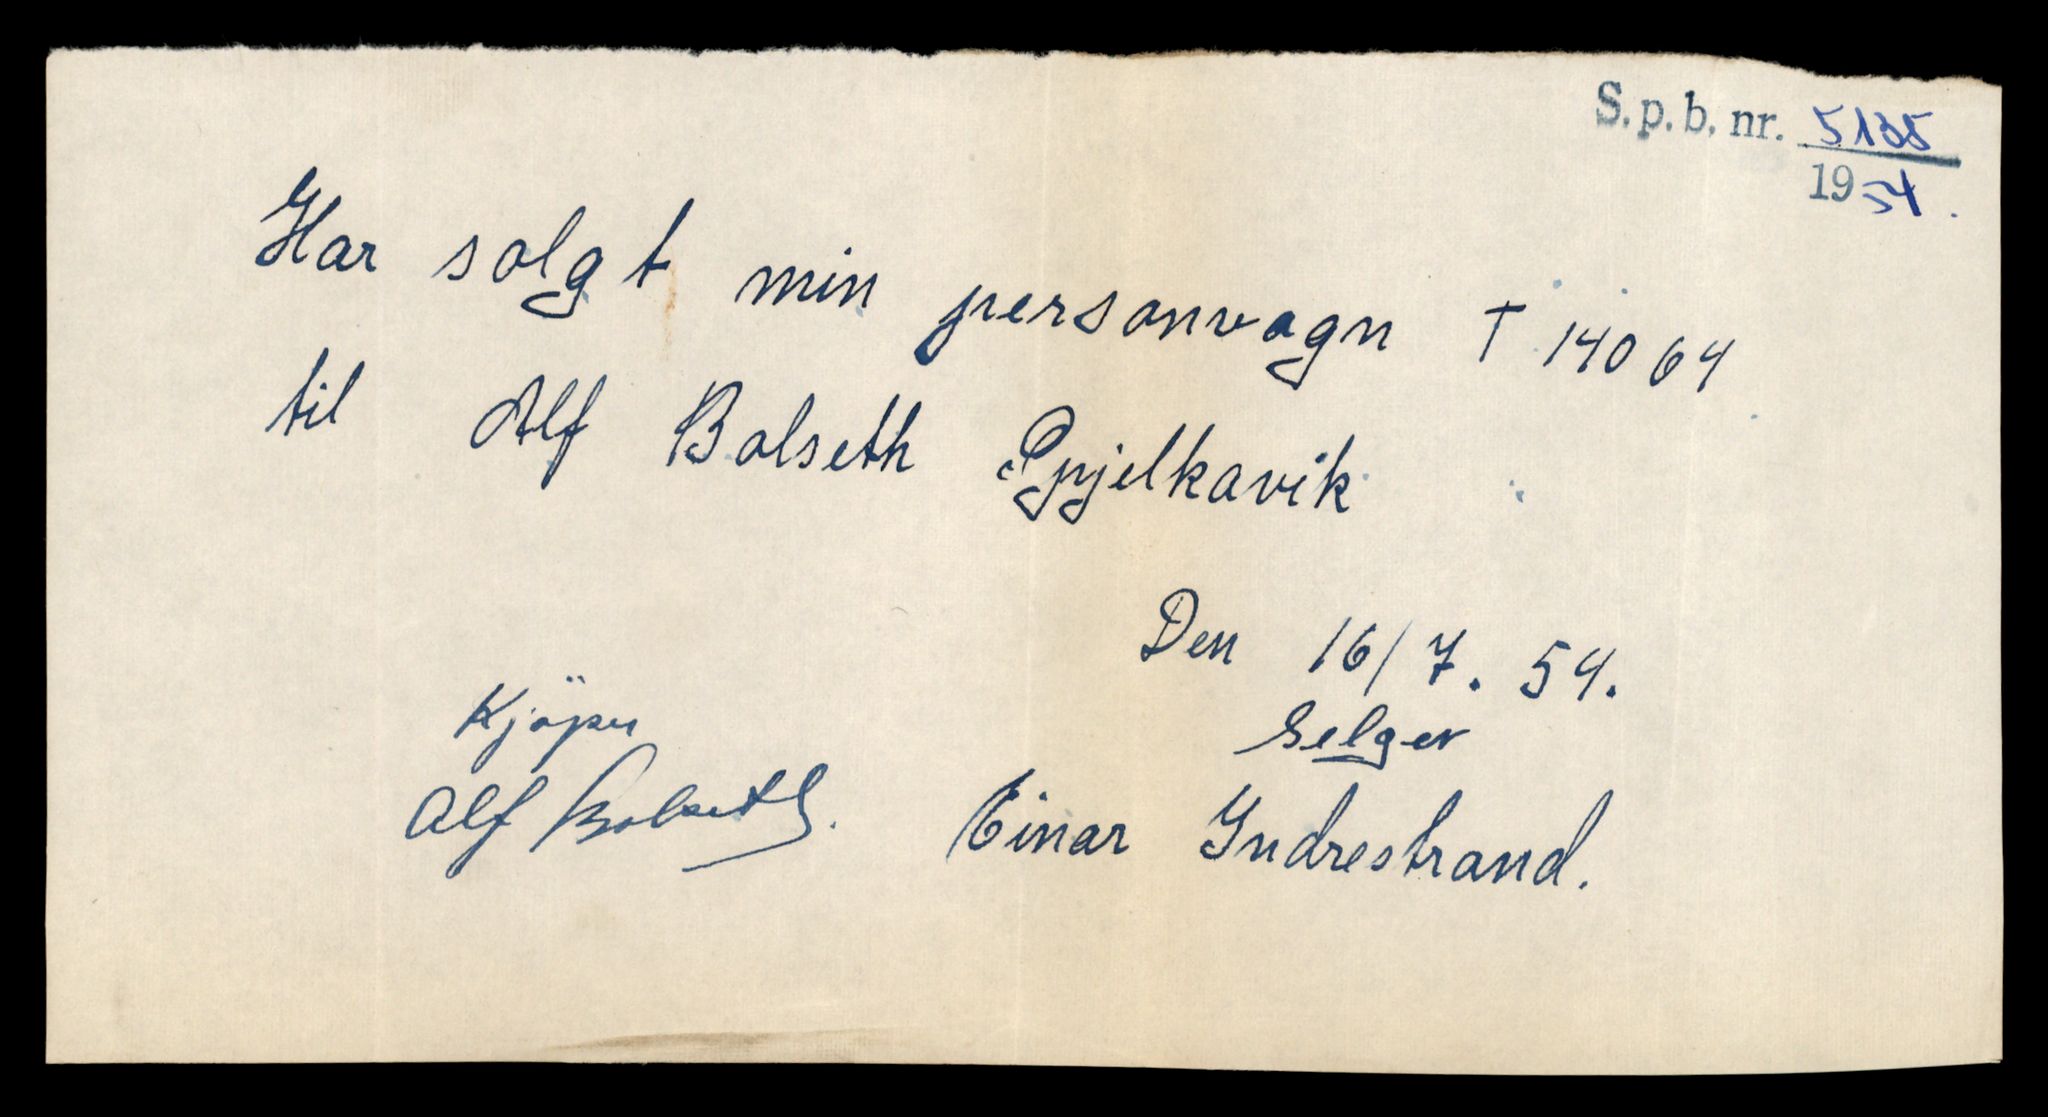 S.p.b. nr. 5135
1954.
Har solgt min personvogn T 14064
til Alf Bolseth Spjelkavik
Den 16/7. 54.
Kjöper
Selger
Alf Bolseth.
Einar Indrestrand.